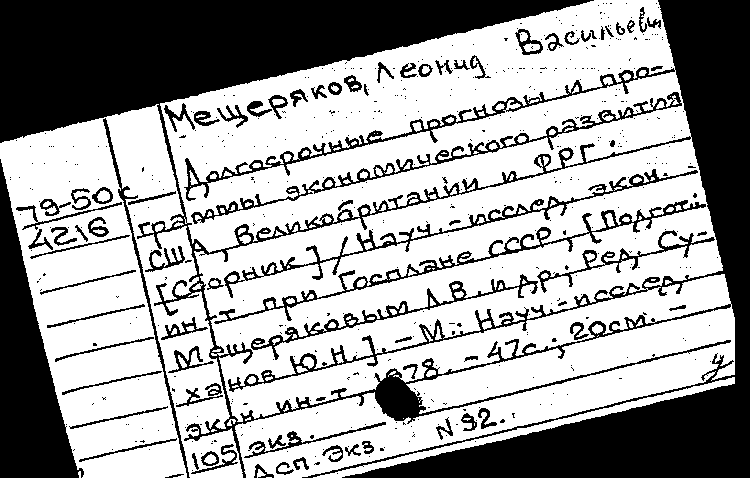 Мещеряков, Леонид Васильевич
Долгосрочные прогнозы и про-
79-50с граммы экономического развития
4216 США, Великобритании и ФРГ:
[Сборник] / Науч.-исслед. экон.
ин-т при Госплане СССР; [Подгот.
Мещеряковым Л.В. и др.; Ред. Су-
ханов Ю.Н.]. – М.: Науч.-исслед.
экон. ин-т, 1978. – 47с.; 20см. –
105 экз.
Асп. Экз. N 92.
у